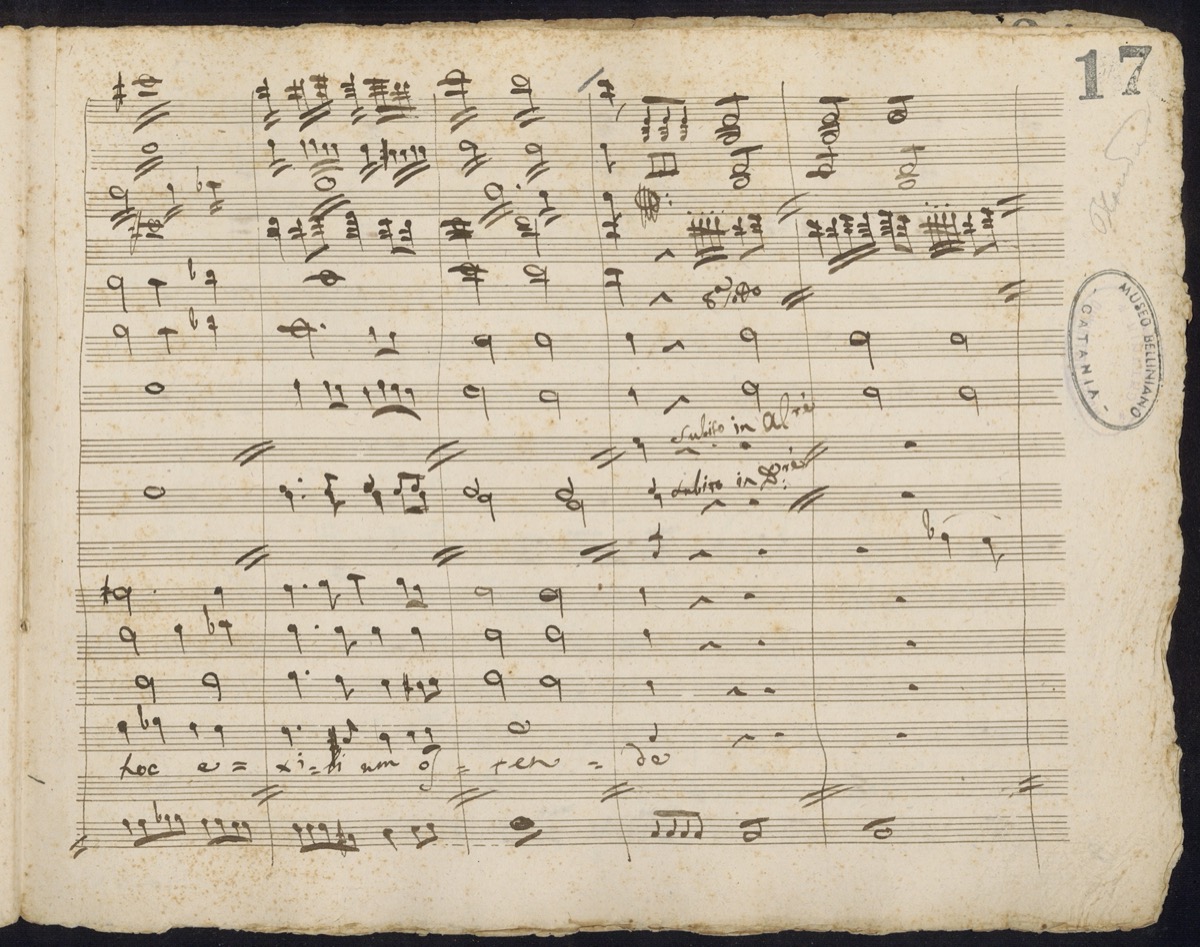 17
MUSEO BELLINIANO
- CATANIA -
subito in Alrè
subito in
hoc e = xi = li um os = ten = de